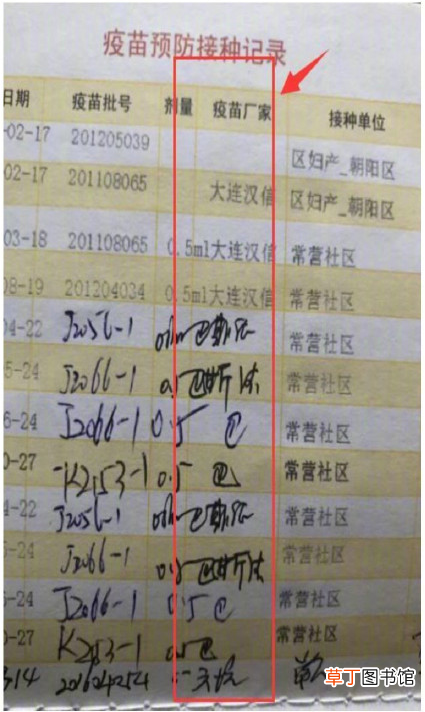 疫苗预防接种记录
日期 疫苗批号 剂量 疫苗厂家 接种单位
-02-17 201205039 区妇产_朝阳区
-02-17 201108065 大连汉信 区妇产_朝阳区
03-18 201108065 0.5ml大连汉信 常营社区
08-19 201204034 0.5ml大连汉信 常营社区
04-22 J2056-1 巴斯德 常营社区
5-24 J2066-1 0.5 常营社区
6-24 J2066-1 0.5 巴 常营社区
0-27 K2153-1 0.5 巴 常营社区
4-22 J2056-1 巴斯德 常营社区
5-24 J2066-1 0.5 常营社区
6-24 J2066-1 0.5 巴 常营社区
0-27 K2153-1 0.5 巴 常营社区
3.14
草丁图书馆